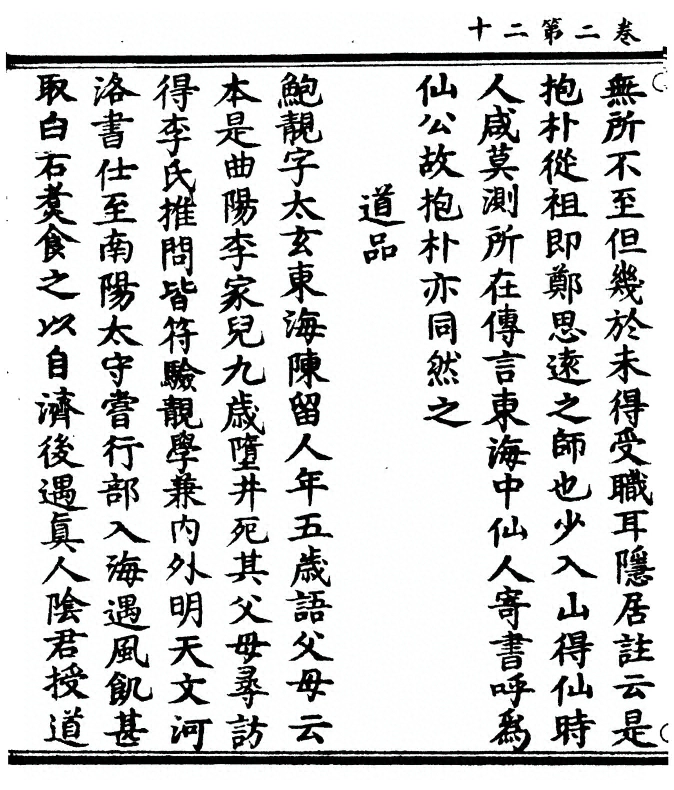 卷二第二十
無所不至但幾於未得受職耳隱居註云是
抱朴從祖即鄭思遠之師也少入山得仙時
人咸莫測所在傳言東海中仙人寄書呼爲
仙公故抱朴亦同然之
道品
鮑靚字太玄東海陳留人年五歲語父母云
本是曲陽李家兒九歲墮井死其父母尋訪
得李氏推問皆符驗靚學兼内外明天文河
洛書仕至南陽太守嘗行部入海遇風飢甚
取白石煑食之以自濟後遇眞人陰君授道